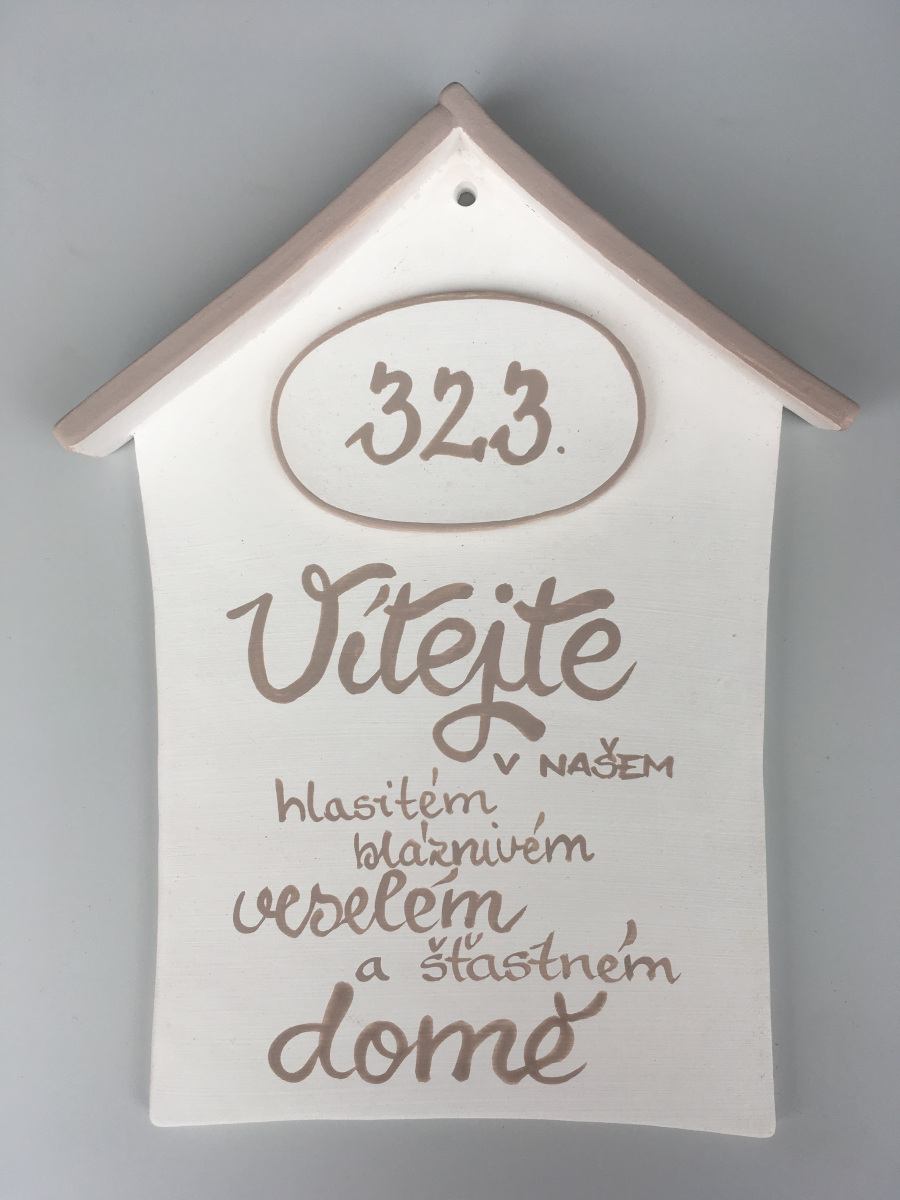 323.
Vítejte
v NAŠEM
hlasitém
bláznivém
veselém
a šťastném
domě